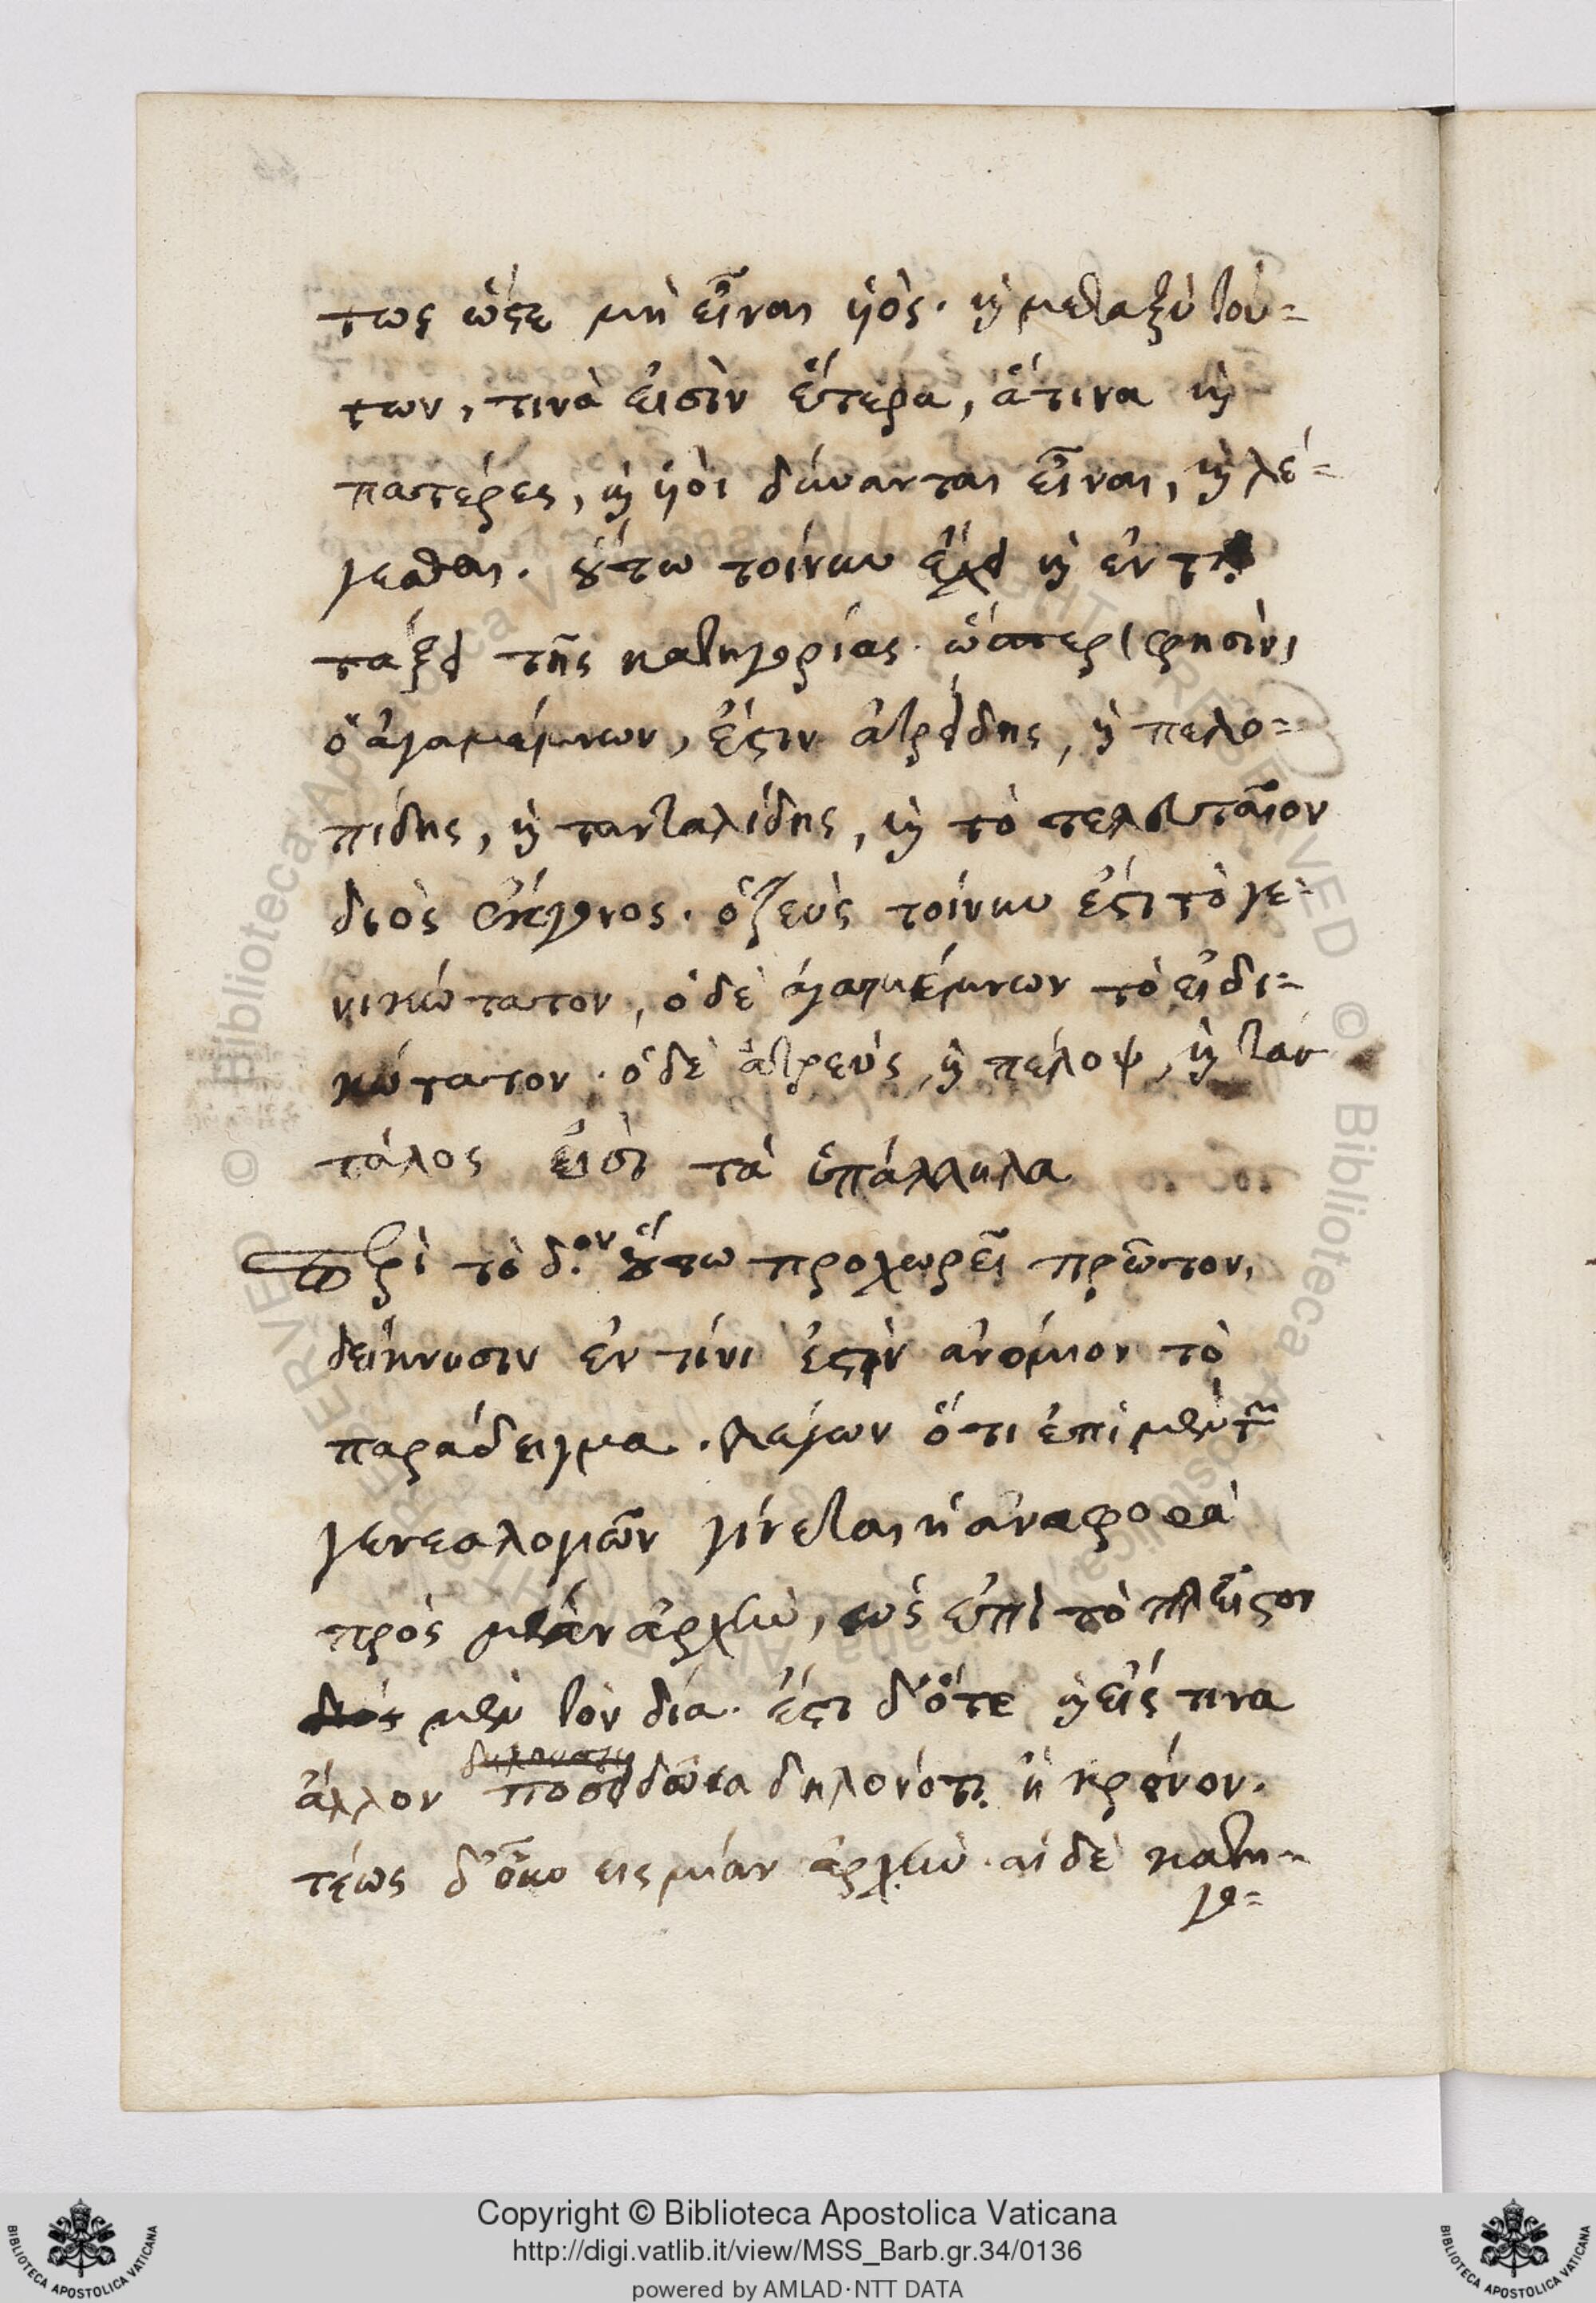 τως ὥστε μὴ εἶναι ὑὸς· καὶ μεταξὺ τού=
των, τινὰ εἰσὶν ἕτερα, ἅτινα καὶ
πατέρες, καὶ ὑοὶ δύνανται εἶναι, καὶ λέ=
γεσθαι. οὕτω τοίνυν ἔχει καὶ ἐν τῇ
τάξει τῆς κατηγορίας· ὥσπερ (φησὶν)
ὁ ἀγαμέμνων, ἔστιν ἀτρείδης, καὶ πελο=
πίδης, καὶ τανταλίδης, καὶ τὸ τελευταῖον
διὸς ἔκγονος. ὁ ζεὺς τοίνυν ἐστὶ τὸ γε=
νικώτατον, ὁ δὲ ἀγαμέμνων τὸ εἰδι=
κώτατον. ὁ δὲ ἀτρεὺς, καὶ πέλοψ, καὶ ταν
τάλος εἰσὶ τὰ ὑπάλληλα
Περὶ τὸ δ.ον οὕτω προχωρεῖ πρῶτον,
δείκνυσιν ἐν τίνι ἐστὶν ἀνόμοιον τὸ
παράδειγμα. λέγων ὅτι ἐπὶ μὲν τῶν
γενεαλογιῶν γίνεται ἡ ἀναφορὰ
πρὸς μίαν ἀρχὴν, ὡς ἐπὶ τὸ πλεῖστον
μὲν τὸν δία. ἔστι δ' ὅτε καὶ εἰς τινα
ἄλλον ποσειδῶνα δηλονότι ἢ κρόνον.
τέως δ' οὖν εἰς μίαν ἀρχὴν. αἱ δὲ κατη=
γο=
Copyright © Biblioteca Apostolica Vaticana
http://digi.vatlib.it/view/MSS_Barb.gr.34/0136
powered by AMLAD·NTT DATA